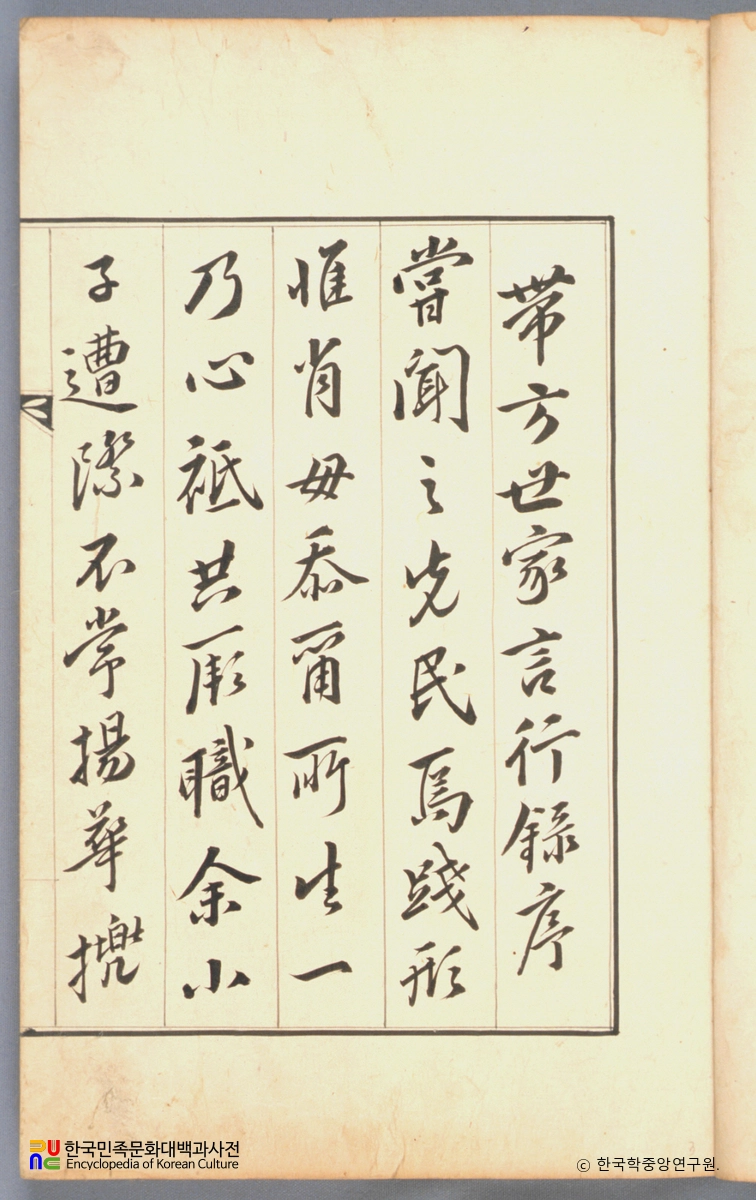 帶方世家言行錄序
嘗聞之先民焉踐形
惟肖毋忝爾所生一
乃心祗共厥職余小
子遭際不常揚華
한국민족문화대백과사전
Encyclopedia of Korean Culture
ⓒ 한국학중앙연구원.